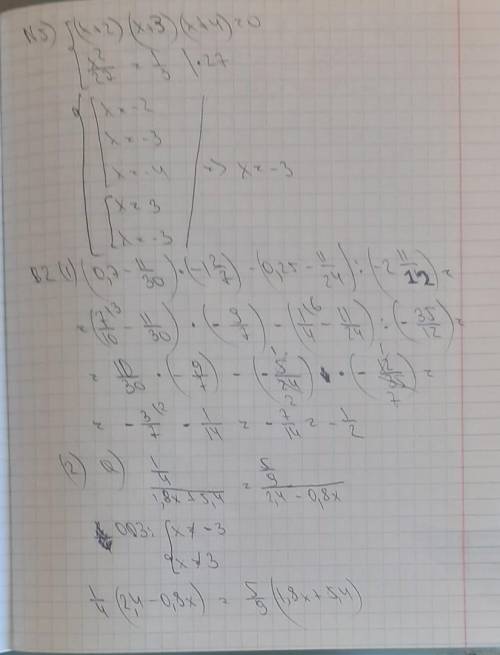 №3) { (x+2)(x+3)(x+4)=0
x²/27 = 1/3 | ·27
x=-2
x=-3
x=-4 => x=-3
x=3
x=-3
В2 (1) (0,7 - 11/30) · (-1 2/7) - (0,25 - 11/24) : (-2 11/12) =
= (7/10 - 11/30) · (-9/7) - (1/4 - 11/24) : (-35/12) =
= 10/30 · (-9/7) - (-5/24) · (-12/35) =
= -3/7 - 1/14 = -7/14 = -1/2
(2) а) (1/4)/(1,8x+5,4) = (5/9)/(2,4-0,8x)
ОДЗ: { x≠-3
x≠3
1/4 (2,4-0,8x) = 5/9 (1,8x+5,4)